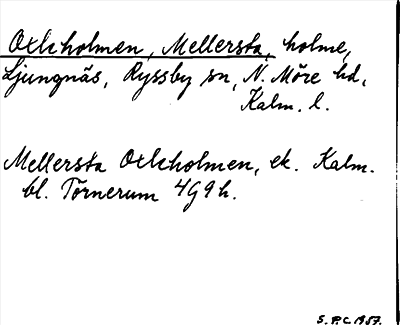 Oxleholmen, Mellersta, holme,
Ljungnäs, Ryssby sn, N. Möre hd,
Kalm. l.
Mellersta Oxleholmen, ek. Kalm.
bl. Törnerum 4G9h.
S.P.C 1957.